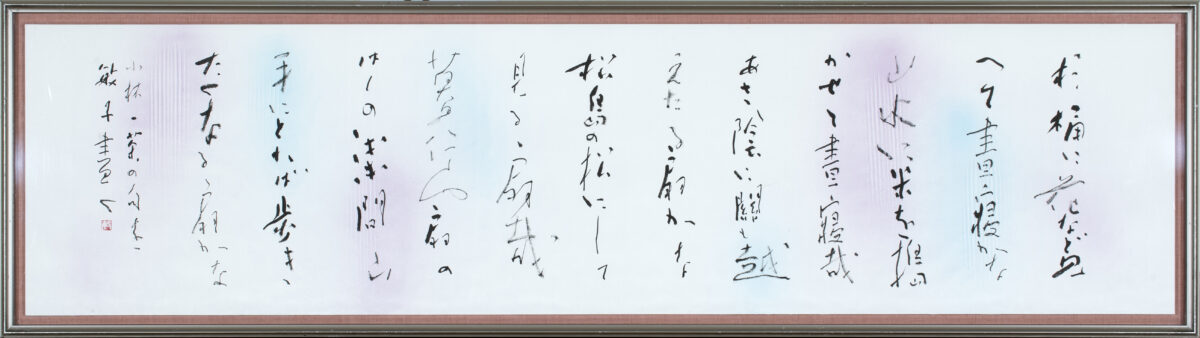 桶に花など見
へて晝寝かな
山水に米を搗
かせて晝寝哉
あさ陰に關も越
えたる扇かな
松島の松にして
見る扇哉
暮行や扇の
はしの浅間山
手にとれば歩き
たくなる扇かな
小林一茶の句
敏子書